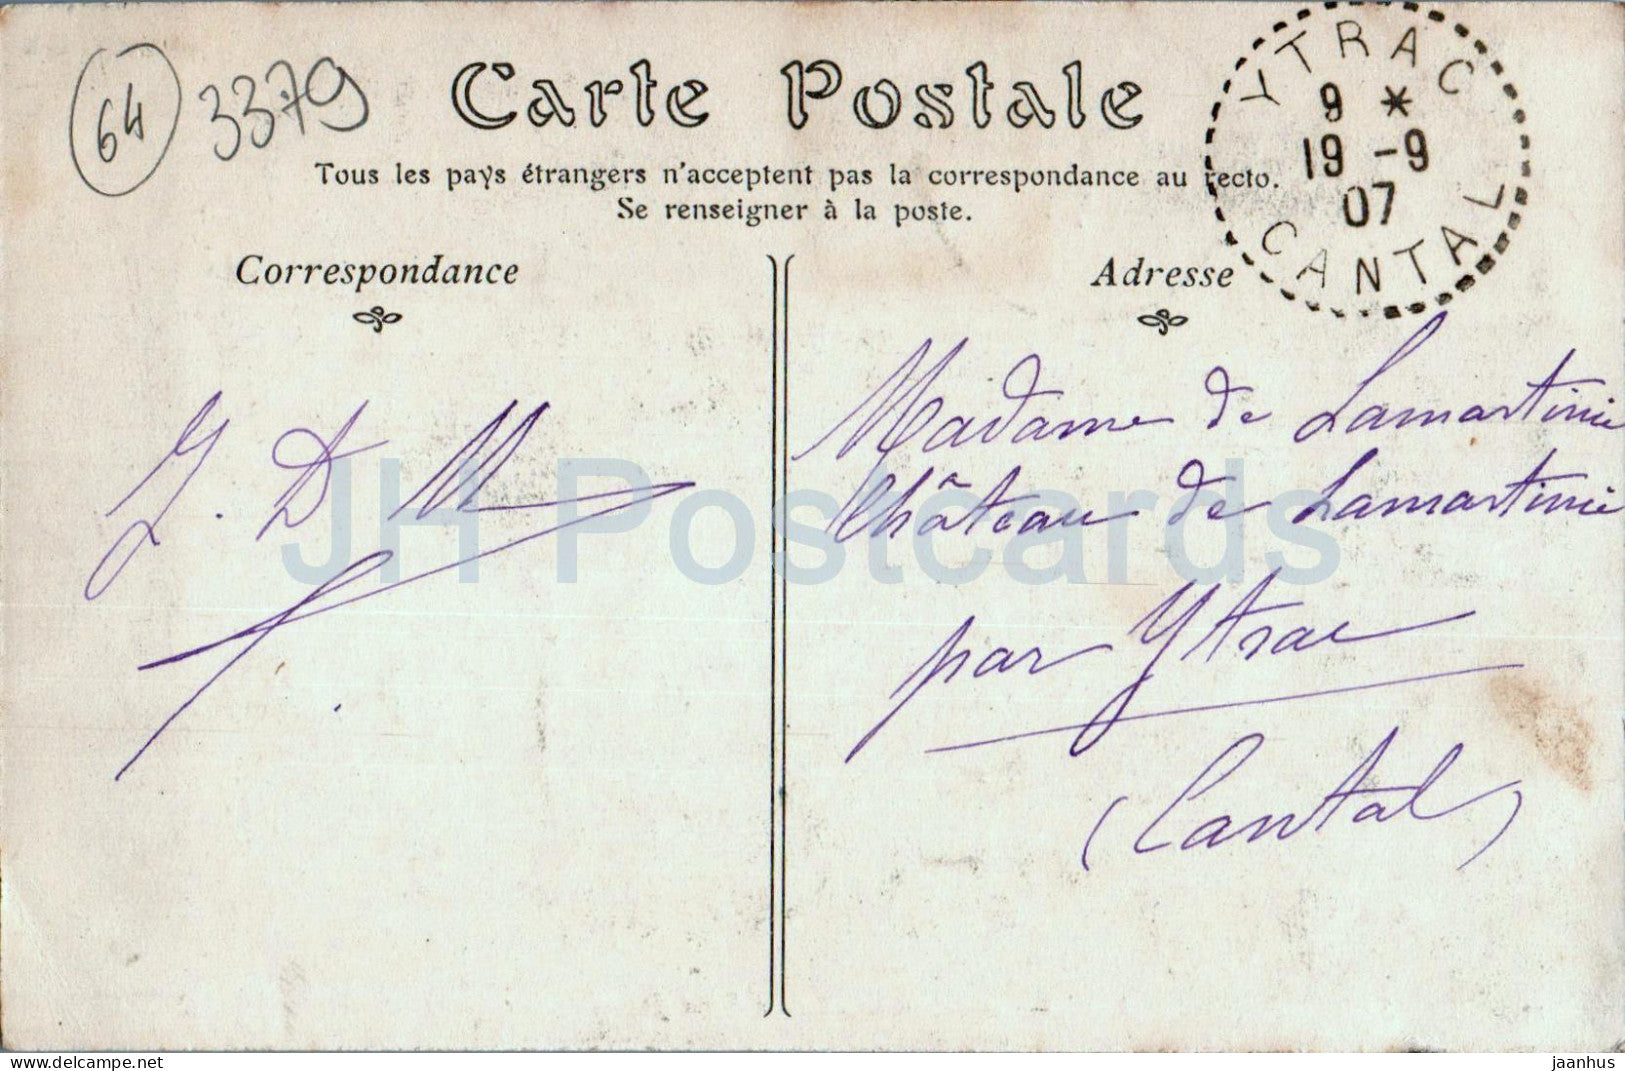 64
3379
Carte Postale
Tous les pays étrangers n'acceptent pas la correspondance au recto.
Se renseigner à la poste.
YTRAC
9 *
19 -9
07
CANTAL
Correspondance
Adresse
J. D M
Madame de Lamartinie
Château de Lamartinie
par Ytrac
(Cantal)
JH Postcards
www.delcampe.net
jaanhus